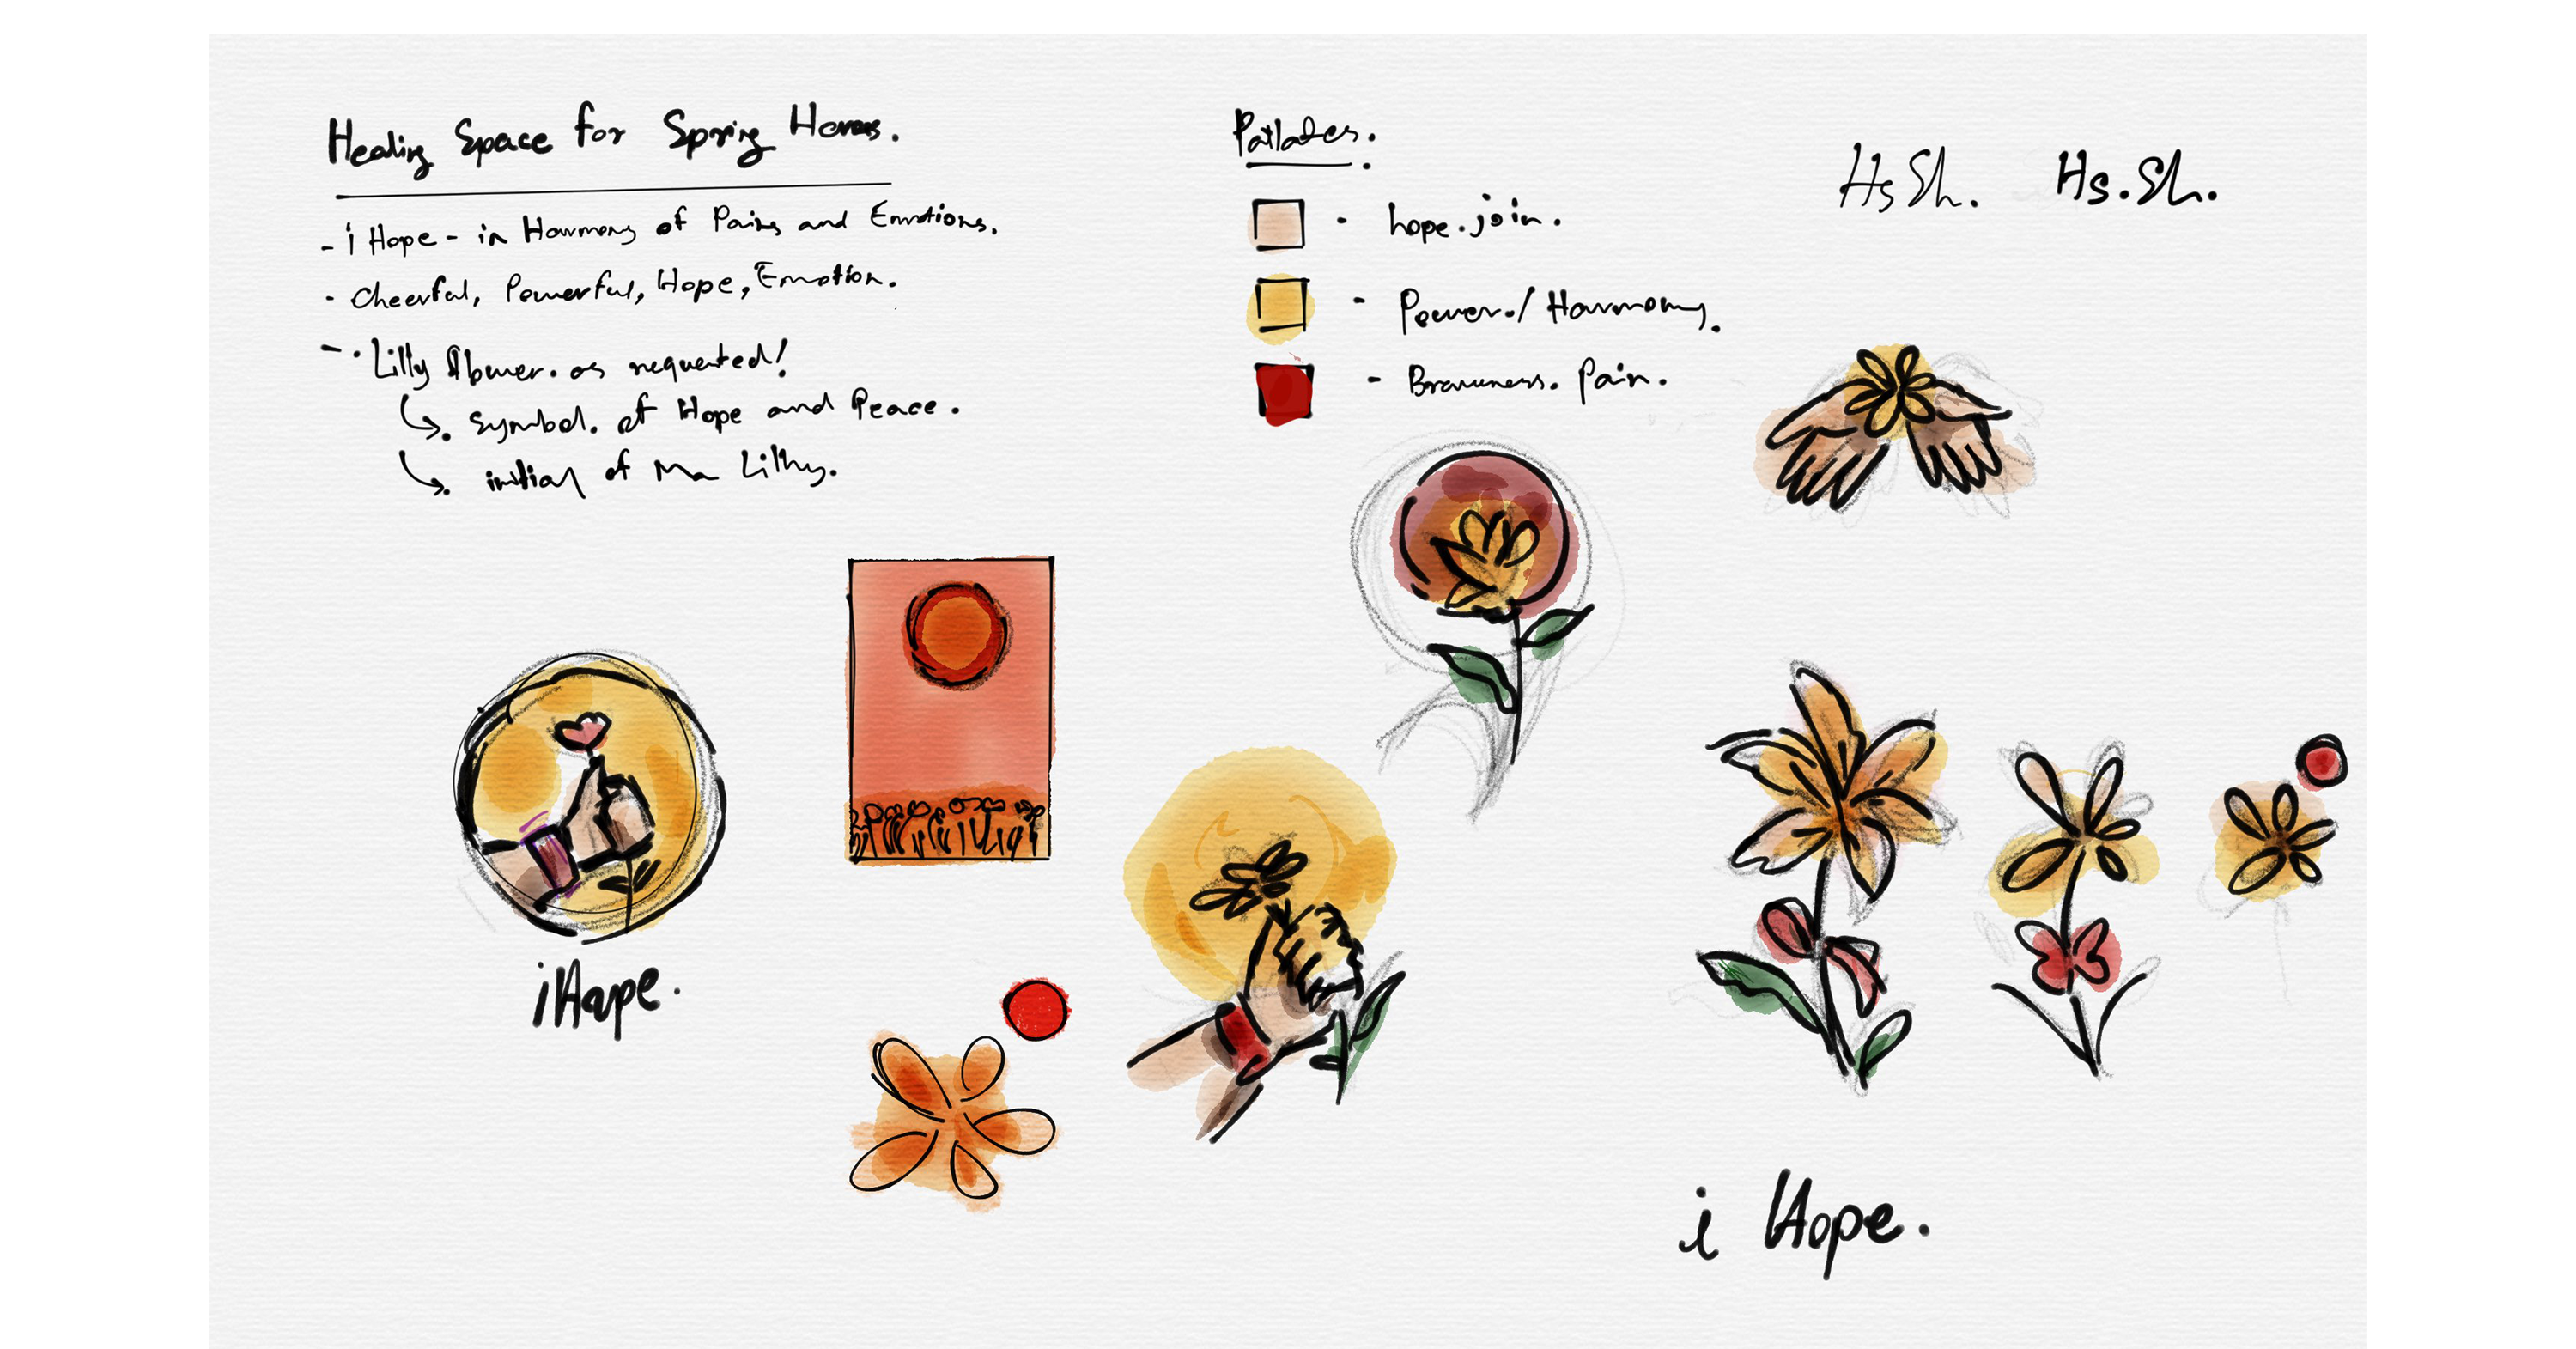 Healing Space for Spring
- i Hope - in Harmony of Pains and Emotions.
- Cheerful, Powerful, Hope, Emotion.
- . Lilly flower. as requested!
symbol. of Hope and Peace.
initial of Ma
Patlates.
- hope. join.
- Power. / Harmony.
- Pain.
Hs Sh. Hs. Sh.
i Hope.
i Hope.